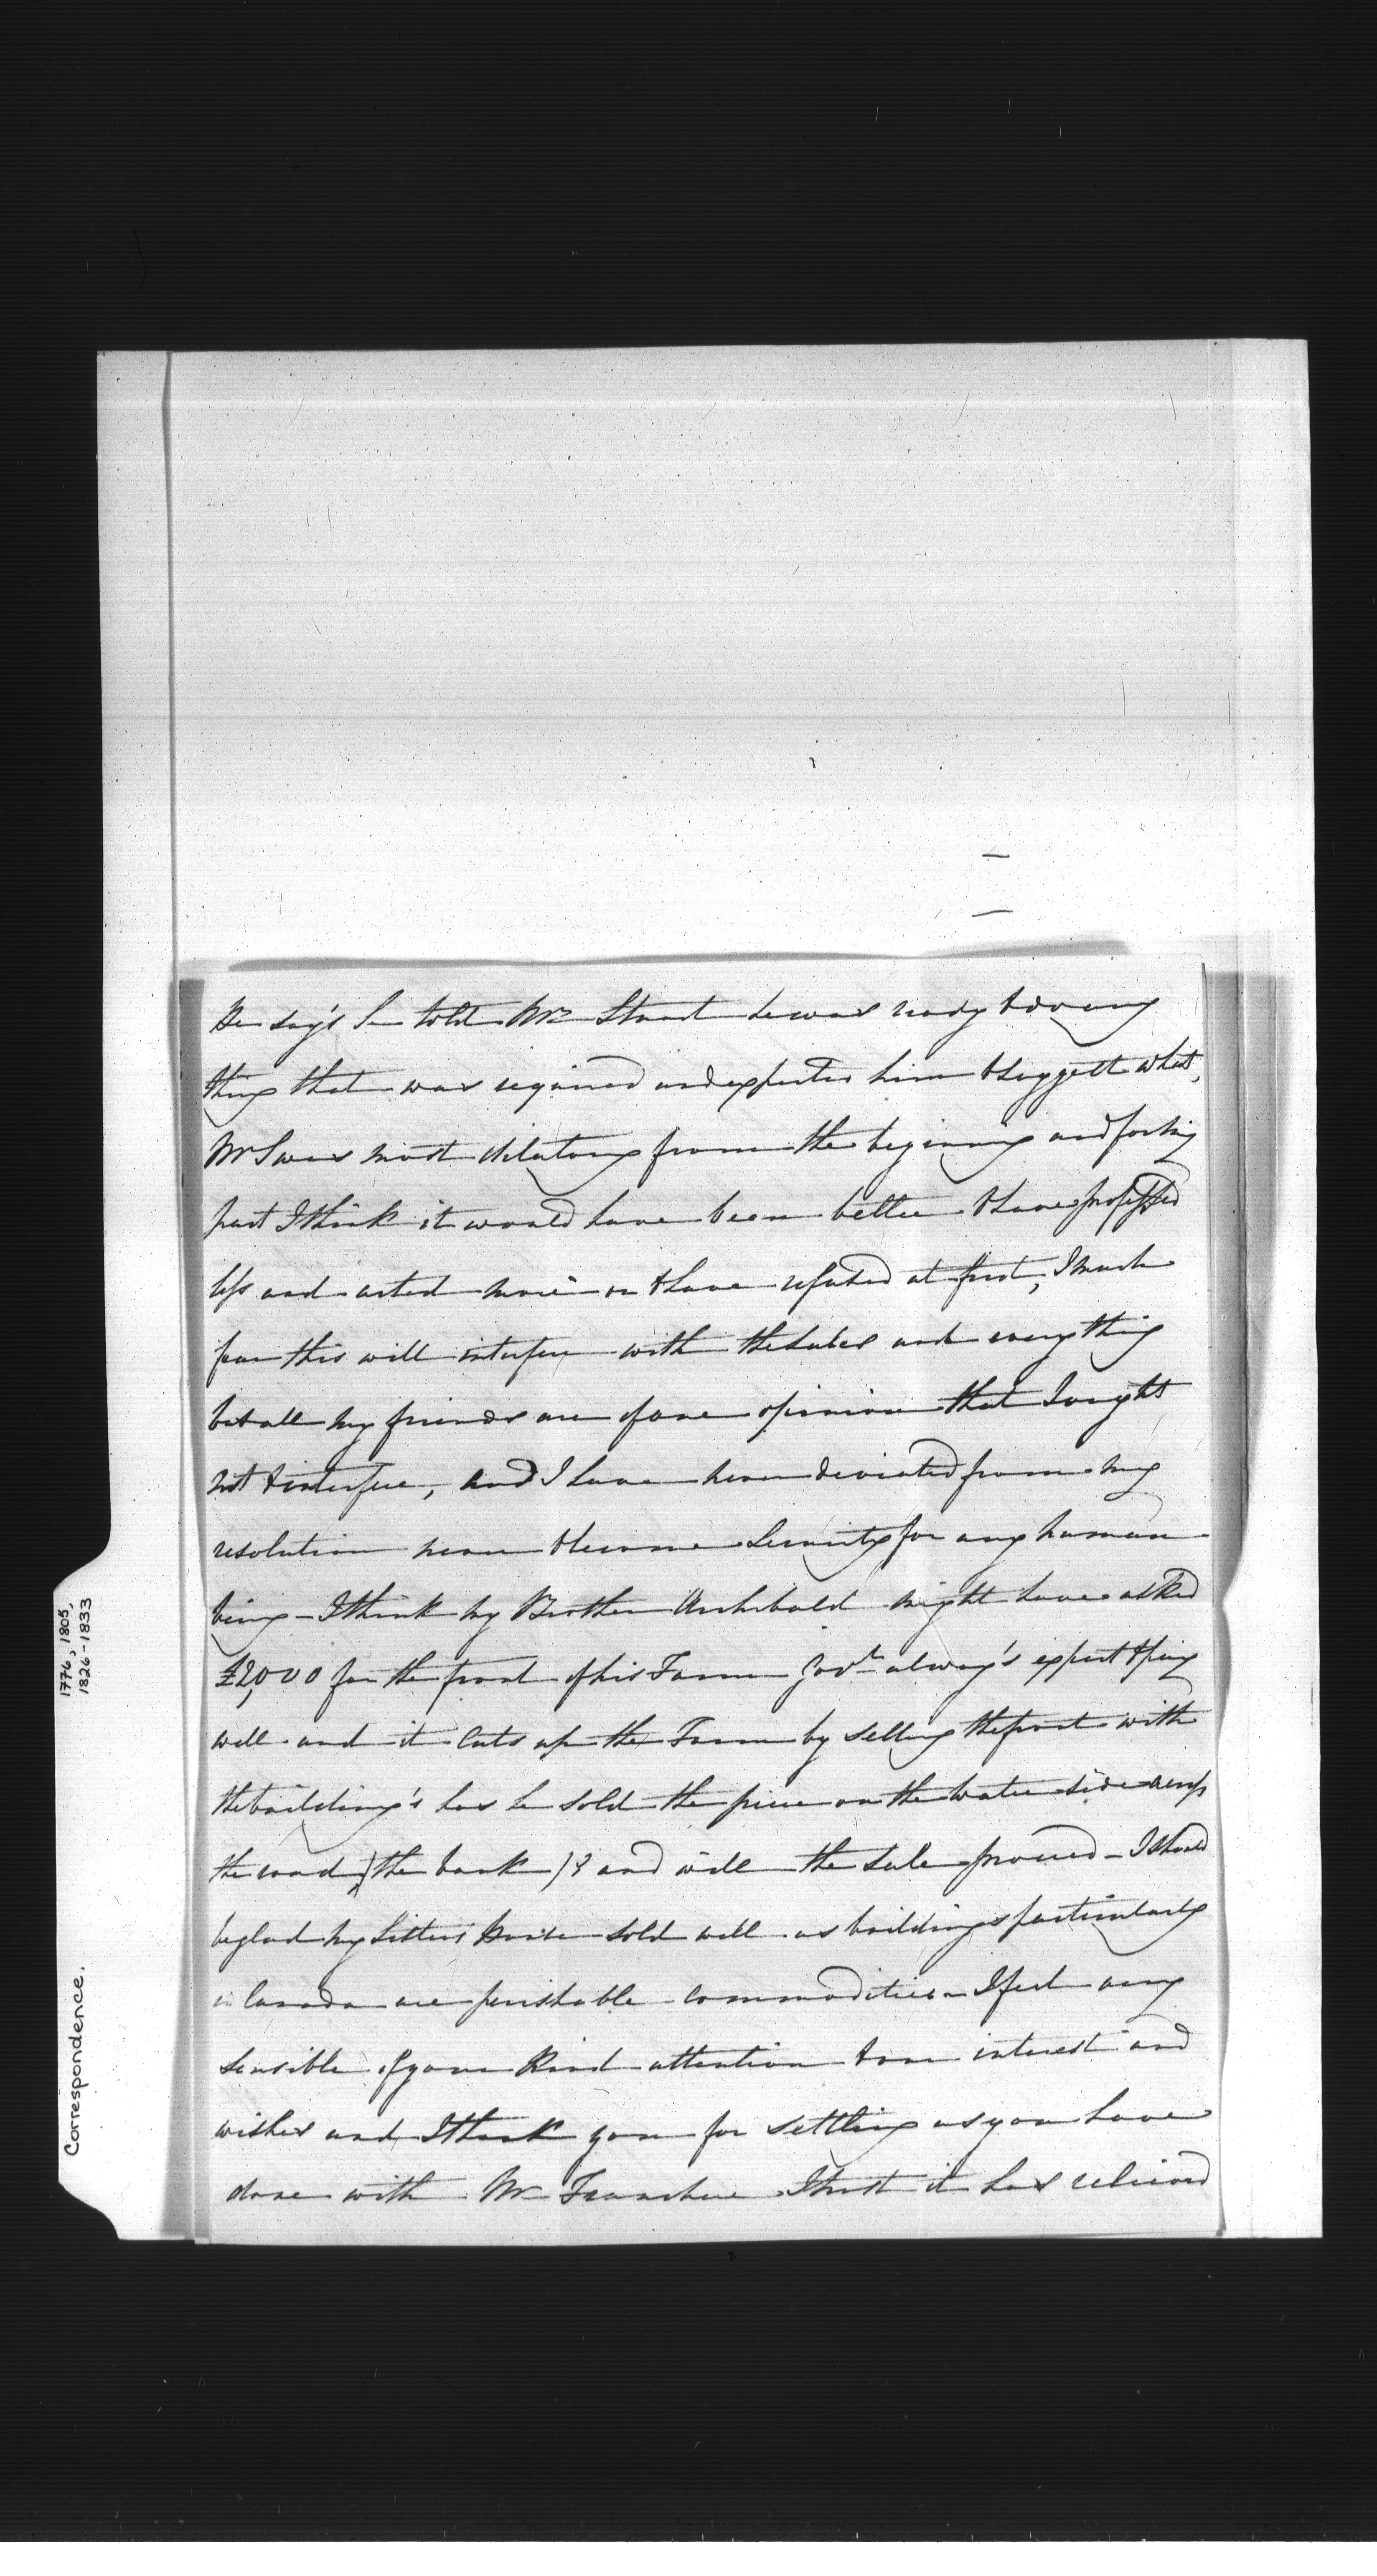 He say's he told Mr Stuart he was ready to do any
thing that was required and expected him to suggest what,
Mr S was most dilatory from the beginning and for his
part I think it would have been better to have professed
less and acted more or to have refused at first, I much
fear this will interfere with the sales and every thing
but all my friends are of one opinion that I ought
not to interfere, and I have never deviated from my
resolution never to become Security for any human
being - I think my Brother Archibald might have asked
£2,000 for the front of his Farm Govt always expect to pay
well and it Cuts up the Farm by selling the front with
the building's has he sold the piece on the water side across
the road (the bank)? and will the sale proceed - I should
be glad my Sisters House sold well as buildings particularly
in Canada are perishable commodities - I feel very
sensible of your kind attention to our interest and
wishes and I thank you for settling as you have
done with Mr Franchere I trust it has relieved
Correspondence.
1776, 1805,
1826-1833